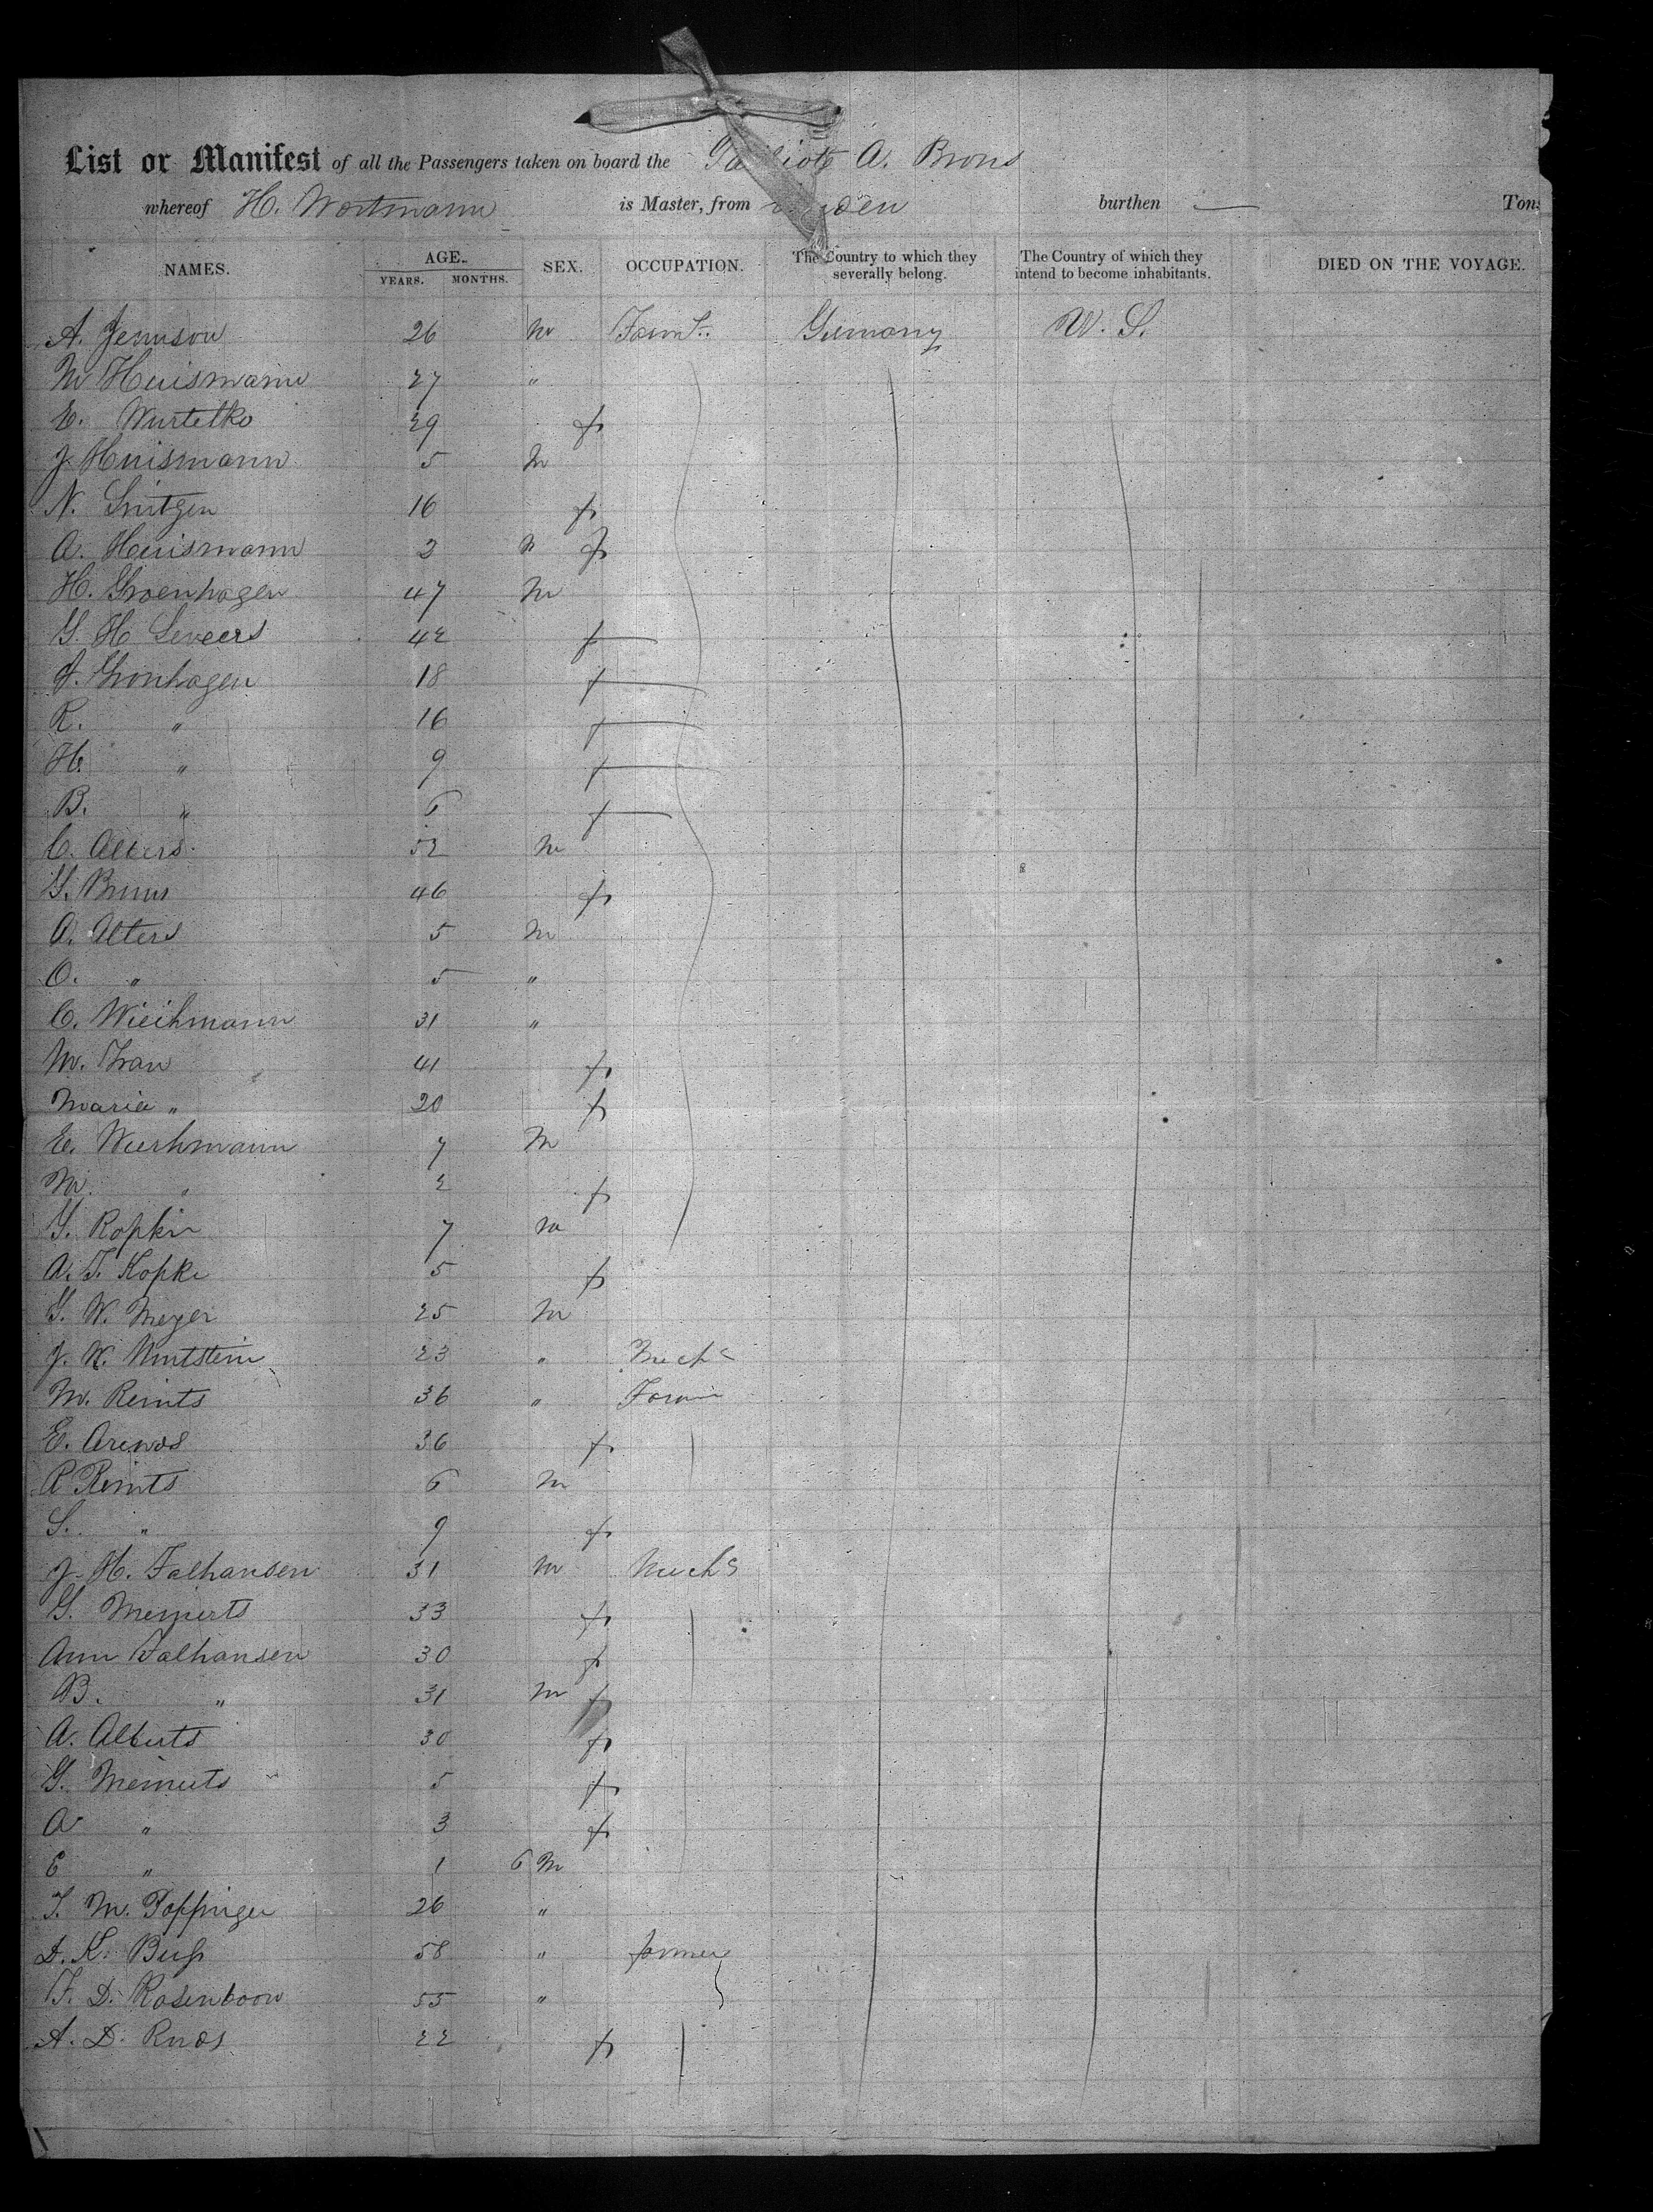 List or Manifest of all the Passengers taken on board the A. Brons
whereof H. Wortmann is Master, from burthen — Tons
NAMES. AGE. SEX. OCCUPATION. The Country to which they severally belong. The Country of which they intend to become inhabitants. DIED ON THE VOYAGE.
YEARS. MONTHS.
A. 26 m Germany U. S.
M Huismann 27 "
E. Wurtelko 29 f
J Huismann 5 m
N. 16 f
A. Huismann 2 f
H. Groenhagen 47 m
G. H Leveers 42 f
J. Gronhagen 18 f
R. " 16 f
H. " 9 f
B. " 6 f
C. Albers 52 m
G. Bruns 46 f
A. Alters 5 m
O. " 5 "
C. Wieihmann 31 "
M. Frau 41 f
Maria " 20 f
E. Wiehmann 7 m
M. " 2 f
G. 7 m
A. F. Kopke 5 f
G. W. Meyer 25 m
J. W. 23 " Mech
M. Reints 36 " Farm
E. Arends 36 f
R Reints 6 m
S. " 9 f
J. H. Falhansen 31 m Mech
G. Meinerts 33 f
Ann Falhansen 30 f
B. " 31 m f
A. Alberts 30 f
G. Meinerts 5 f
A " 3 f
E " 1 6 m
T. M. Poppinger 26 "
D. K. Buss 58 " farmer
F. D. Rosenboom 55 "
A. D. 22 f